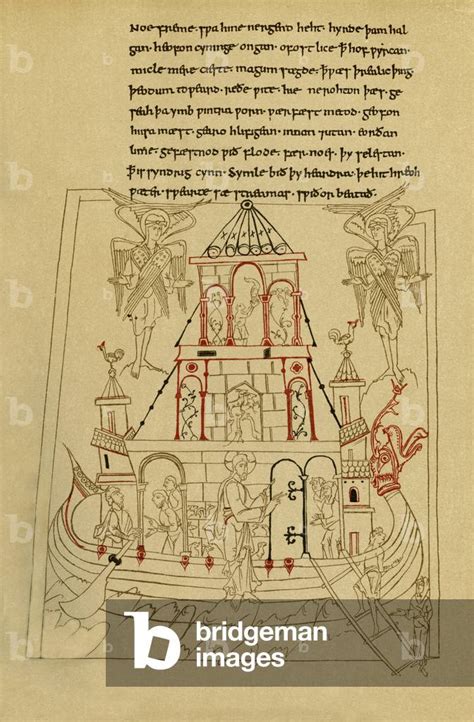 Noe freme. spa hine nergend heht. hyrde þam hal
gan. heofon cyninge ongan. ofost lice ꝥ hof pyrcan.
micle mere cieste. magum sægde. ꝥ pæs þrealic þing.
þeodum topeard. reðe pite. hie ne rohton þæs. ge
seah þa ymb pintra porn. pærfæst metod. geofon
husa mæst. gearo hlifigean. innan 7 utan. eorðan
lime. gefæstnod pið flode. fær noes. þy selestan.
ꝥ is syndrig cynn. Symle bið þy heardra. þe hit hreoh
pæter. spearte sæ streamas. spiðor beatað.
bridgeman
images